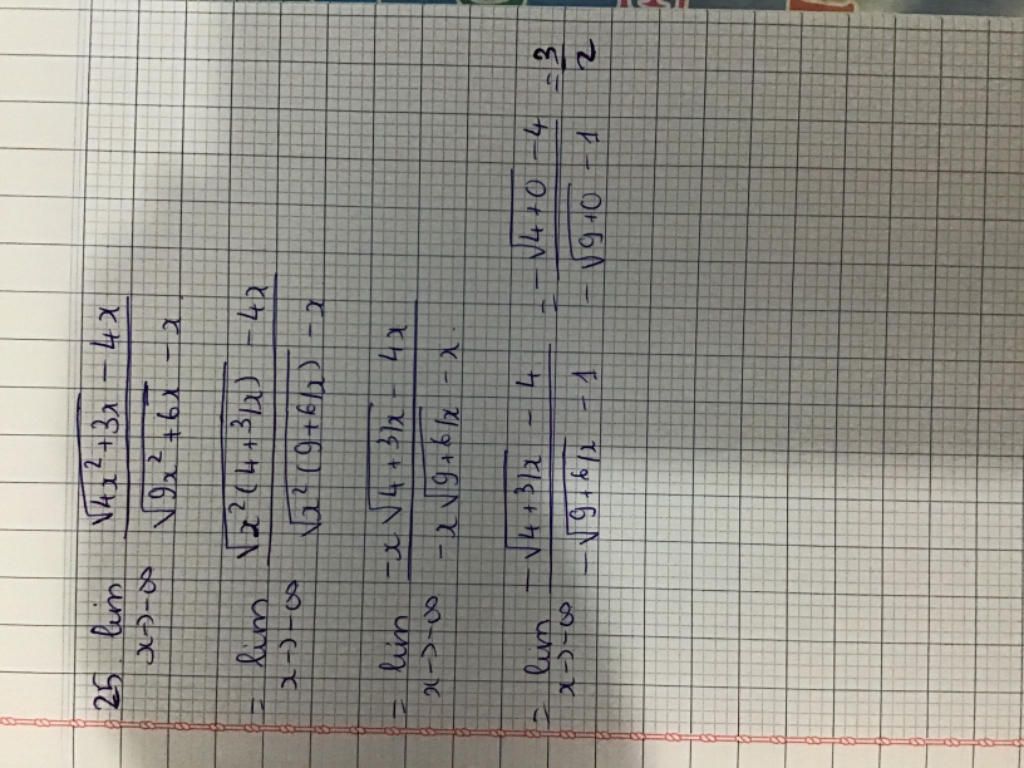 25. lim √(4x²+3x) - 4x / √(9x²+6x) - x
x→-∞
= lim √(x²(4+3/x)) - 4x / √(x²(9+6/x)) - x
x→-∞
= lim -x√(4+3/x) - 4x / -x√(9+6/x) - x
x→-∞
= lim -√(4+3/x) - 4 / -√(9+6/x) - 1 = -√(4+0) - 4 / -√(9+0) - 1 = 3/2
x→-∞